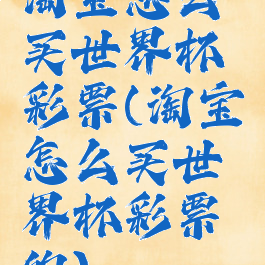 淘宝怎么
买世界杯
彩票(淘宝
怎么买世
界杯彩票
的)